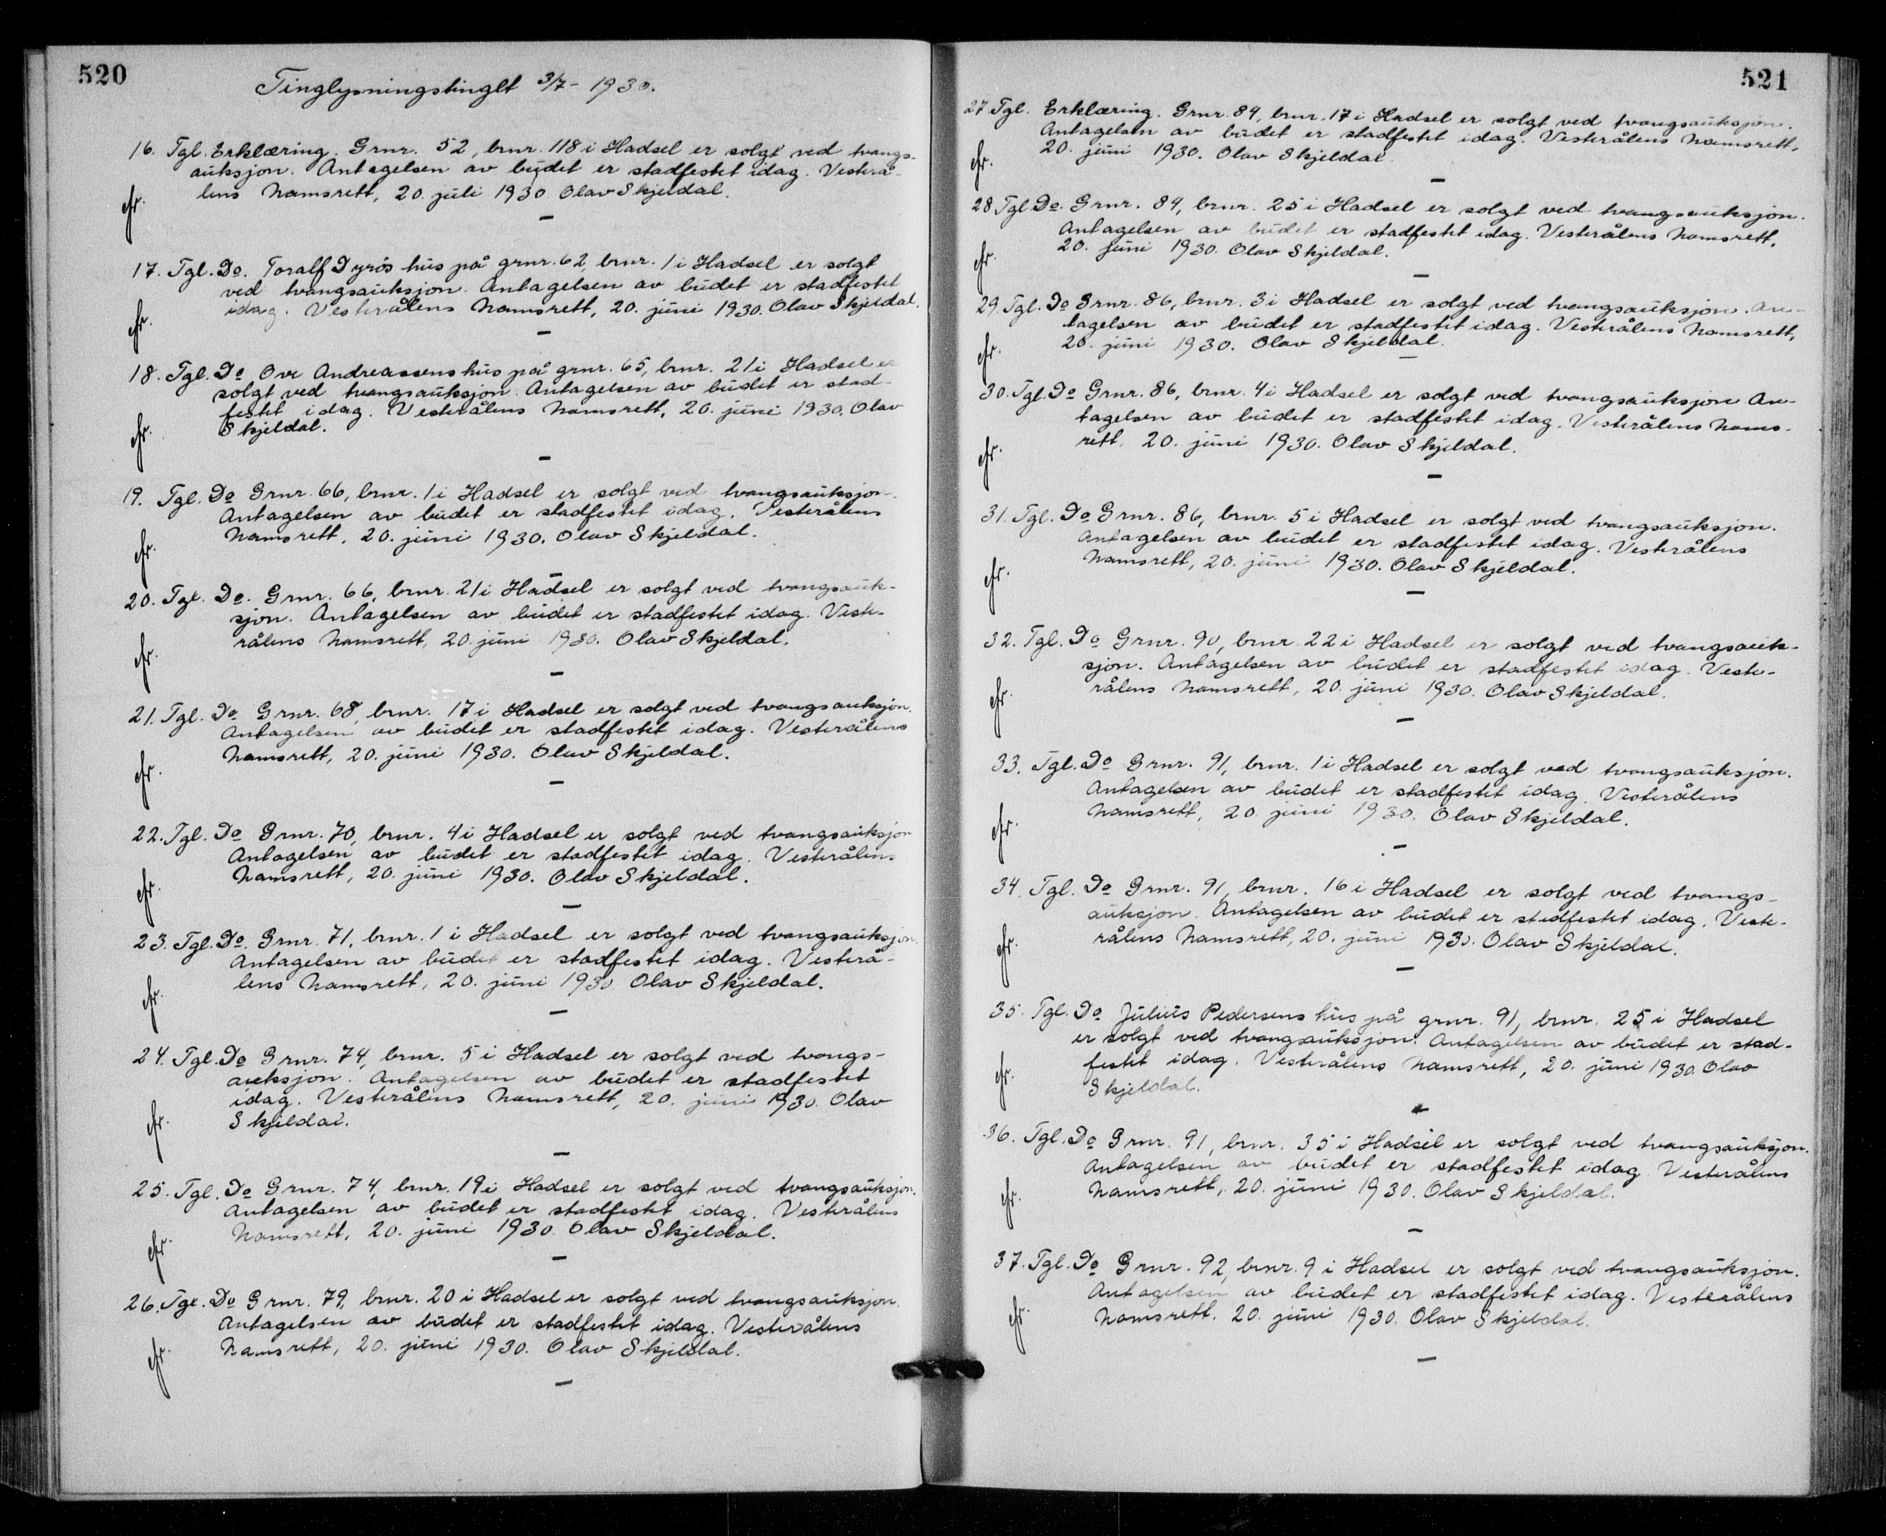 520
Tinglysningstinget 3/7 - 1930.
16. Tgl. Erklæring. Grnr. 52, brnr. 118 i Hadsel er solgt ved tvangs-
auksjon. Antagelsen av budet er stadfestet idag. Vesterå-
lens Namsrett, 20. juli 1930 Olav Skjeldal.
17. Tgl. Do. Toralf Dyrøs hus på grnr. 62, brnr. 1 i Hadsel er solgt
ved tvangsauksjon. Antagelsen av budet er stadfestet
idag. Vesterålens Namsrett, 20. juni 1930. Olav Skjeldal.
18. Tgl. Do Ove Andreassens hus på grnr. 65, brnr. 21 i Hadsel er
solgt ved tvangsauksjon. Antagelsen av budet er stad-
festet idag. Vesterålens Namsrett, 20. juni 1930. Olav
Skjeldal.
19. Tgl. Do Grnr. 66, brnr. 1 i Hadsel er solgt ved tvangsauksjon.
Antagelsen av budet er stadfestet idag. Vesterålens
Namsrett, 20. juni 1930. Olav Skjeldal.
20. Tgl. Do. Grnr. 66, brnr. 21 i Hadsel er solgt ved tvangsauk-
sjon. Antagelsen av budet er stadfestet idag. Veste-
rålens Namsrett, 20. juni 1930. Olav Skjeldal.
21. Tgl. Do Grnr. 68, brnr. 17 i Hadsel er solgt ved tvangsauksjon.
Antagelsen av budet er stadfestet idag. Vesterålens
Namsrett, 20. juni 1930. Olav Skjeldal.
22. Tgl. Do Grnr. 70, brnr. 4 i Hadsel er solgt ved tvangsauksjon
Antagelsen av budet er stadfestet idag. Vesterålens
Namsrett, 20. juni 1930. Olav Skjeldal.
23. Tgl. Do. Grnr. 71, brnr. 1 i Hadsel er solgt ved tvangsauksjon.
Antagelsen av budet er stadfestet idag. Vesterå-
lens Namsrett, 20. juni 1930 Olav Skjeldal.
24. Tgl. Do Grnr. 74, brnr. 5 i Hadsel er solgt ved tvangs-
auksjon. Antagelsen av budet er stadfestet
idag. Vesterålens Namsrett, 20. juni 1930. Olav
Skjeldal.
25. Tgl. Do Grnr. 74, brnr. 19 i Hadsel er solgt ved tvangsauksjon.
Antagelsen av budet er stadfestet idag. Vesterålens
Namsrett, 20. juni 1930. Olav Skjeldal.
26. Tgl. Do Grnr. 79, brnr. 20 i Hadsel er solgt ved tvangsauksjon.
Antagelsen av budet er stadfestet idag. Vesterålens
Namsrett, 20. juni 1930. Olav Skjeldal.
521
27 Tgl. Erklæring. Grnr. 84, brnr. 17 i Hadsel er solgt ved tvangsauksjon.
Antagelsen av budet er stadfestet idag. Vesterålens Namsrett,
20. juni 1930. Olav Skjeldal.
28 Tgl. Do. Grnr. 84, brnr. 25 i Hadsel er solgt ved tvangsauksjon.
Antagelsen av budet er stadfestet idag. Vesterålens Namsrett,
20. juni 1930. Olav Skjeldal.
29. Tgl. Do Grnr. 86, brnr. 3 i Hadsel er solgt ved tvangsauksjon. An-
tagelsen av budet er stadfestet idag. Vesterålens Namsrett,
20. juni 1930. Olav Skjeldal.
30. Tgl. Do Grnr. 86, brnr. 4 i Hadsel er solgt ved tvangsauksjon An-
tagelsen av budet er stadfestet idag. Vesterålens Nams-
rett, 20. juni 1930. Olav Skjeldal.
31. Tgl. Do Grnr. 86, brnr. 5 i Hadsel er solgt ved tvangsauksjon.
Antagelsen av budet er stadfestet idag. Vesterålens
Namsrett, 20. juni 1930. Olav Skjeldal.
32. Tgl. Do Grnr. 90, brnr. 22 i Hadsel er solgt ved tvangsauk-
sjon. Antagelsen av budet er stadfestet idag. Veste-
rålens Namsrett, 20. juni 1930. Olav Skjeldal.
33. Tgl. Do Grnr. 91, brnr. 1 i Hadsel er solgt ved tvangsauksjon.
Antagelsen av budet er stadfestet idag. Vesterålens
Namsrett, 20 juni 1930. Olav Skjeldal.
34. Tgl. Do Grnr. 91, brnr. 16 i Hadsel er solgt ved tvangs-
auksjon. Antagelsen av budet er stadfestet idag. Veste-
rålens Namsrett, 20. juni 1930. Olav Skjeldal.
35. Tgl. Do Julius Pedersens hus på grnr. 91, brnr. 25 i Hadsel
er solgt ved tvangsauksjon. Antagelsen av budet er stad-
festet idag. Vesterålens Namsrett, 20. juni 1930 Olav
Skjeldal.
36. Tgl. Do Grnr. 91, brnr. 35 i Hadsel er solgt ved tvangsauksjon.
Antagelsen av budet er stadfestet idag Vesterålens
Namsrett, 20. juni 1930. Olav Skjeldal.
37. Tgl. Do Grnr. 92, brnr. 9 i Hadsel er solgt ved tvangsauksjon.
Antagelsen av budet er stadfestet idag. Vesterålens
Namsrett. 20. juni 1930. Olav Skjeldal.